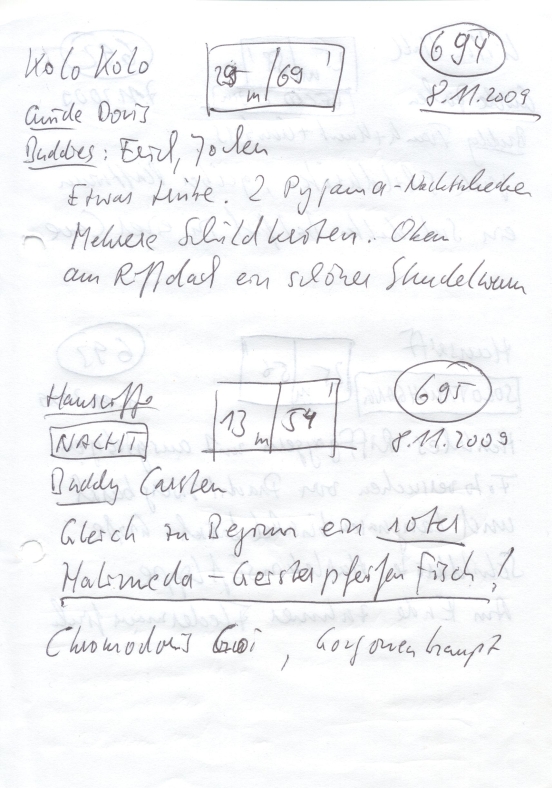 694
Kolo Kolo
29 m / 69 '
8.11.2009
Guide Doris
Buddies: Erich, Jochen
Etwas trübe. 2 Pyjama-Nacktschnecken
Mehrere Schildkröten. Oben
am Riffdach ein schöner Strudelwurm
695
Hausriff
13 m 54 '
NACHT
8.11.2009
Buddy Carsten
Gleich zu Beginn ein roter
Halimeda-Geisterpfeifenfisch!
Chromodoris , Gorgonenhaupt